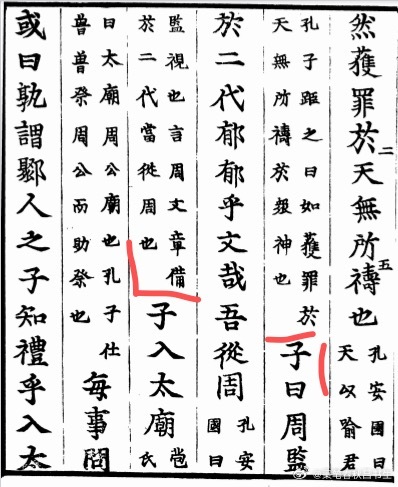 然獲罪於二天無所五禱也孔安國曰天以喻君
孔子距之曰如獲罪於天無所禱於衆神也子曰周監
於二代郁郁乎文哉吾從周孔安國曰
監視也言周文章備於二代當從周也子入太廟苞氏
曰太廟周公廟也孔子仕魯魯祭周公而助祭也每事問
或曰孰謂鄹人之子知禮乎入太